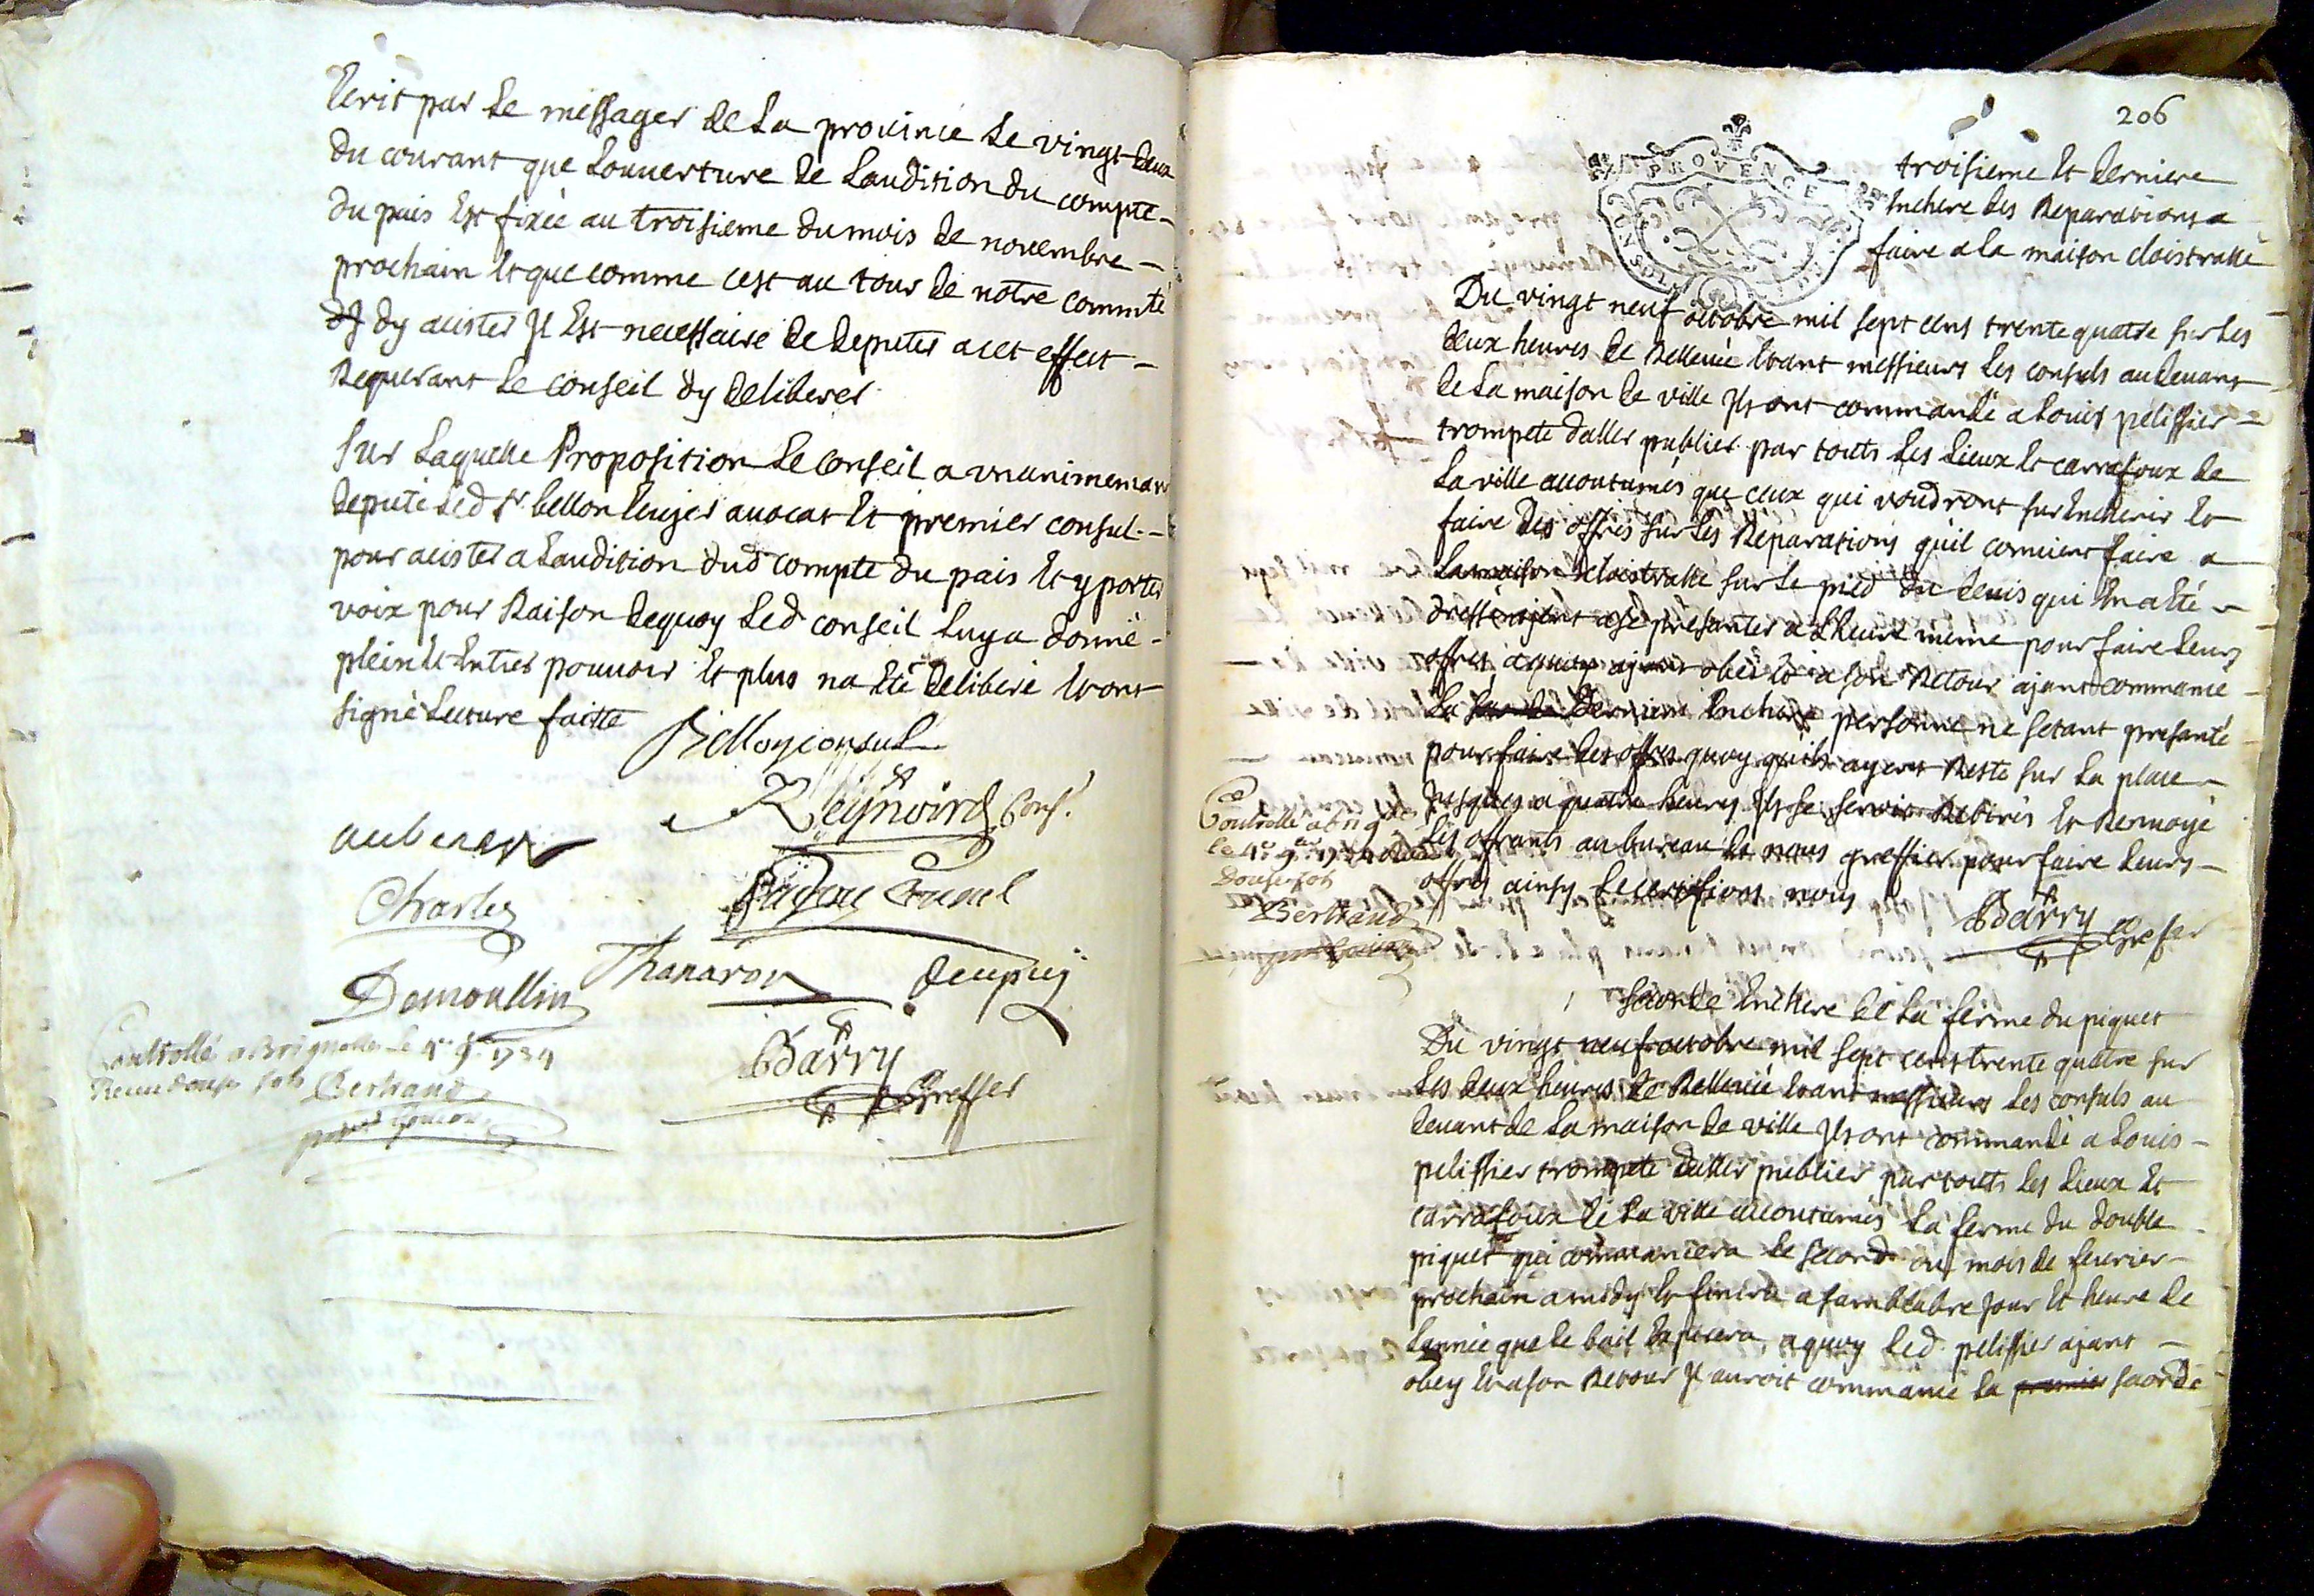 Ecrit par le messager de la province le vingt deux
du courant que Louverture de Laudition du compte
du pais Est fixée au troisieme du mois de novembre
prochain Et que comme cest au tour de notre commté
dy acister Il Est necessaire de deputer acet effect
Requerant le Conseil dy deliberer
Sur laquelle Proposition le Conseil a vnanimemant
deputé led Sr bellon avocat Et premier consul
pour acister a Laudition dud compte du pais Et y porter
voix pour Raison dequoy led conseil luy a donné
plein Et Entier pouvoir Et plus na Eté deliberé Et ont
signé Lecture faitte
Bellon consul
Reynoird Cons.
auberge
Charles
Thanaron
deupuy
Demoullin
Barry
Greffier
Controllé a Brignolle Le 4e 9bre 1734
Receu douse sols
Bertrand
206
PROVENCE
troisieme Et derniere
Enchere des Reparations a
faire a la maison cloistralle
Du vingt neuf octobre mil sept cens trente quatre sur les
deux heures de Rellevée Etant messieurs les consuls audevant
de la maison de ville Ils ont commandé a Louis pelissier
trompete daller publier par touts les Lieux Et carrafoux de
la ville acoutumés que ceux qui voudront surEncherir Et
faire des offres sur les Reparations quil convient faire a
La maison cloistralle sur le pied du devis qui En a Eté
dressé ajent a se presanter a Lheure meme pour faire leurs
offres aquoy ajant obei Et a son Retour ajant commancé
La derniere Enchere personne ne setant presanté
pour faire des offres quoy quils ayent Resté sur la place
Jusques a quatre heures Ils se seroit Retirés Et Renvoyé
les offrants au bureau de nous greffier pour faire leurs
offres ainsy le certifions nous
Barry
Grefier
Controllé a Brig
le 4e 9bre 1734
Douse sols
Bertrand
Seconde Enchere de la ferme du piquet
Du vingt neuf octobre mil sept cens trente quatre sur
les deux heures de Rellevée Etant messieurs les consuls au
devant de La maison de ville Ils ont commandé a Louis
pelissier trompete daller publier partouts les Lieux Et
carrafoux de la ville acoutumés la ferme du double
piquet qui commancera le second du mois de fevrier
prochain a midy Et finira a samblabre Jour Et heure de
Lannée que le bail Expirera aquoy led pelissier ajant
obey Et a son Retour Il auroit commancé la premier seconde